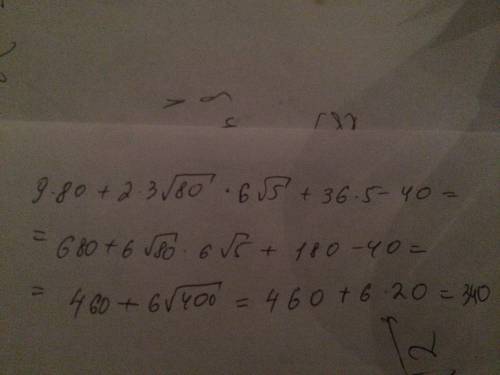 9·80 + 2·3√80 · 6√5 + 36·5 - 40 =
= 680 + 6√80 · 6√5 + 180 - 40 =
= 460 + 6√400 = 460 + 6·20 = 340